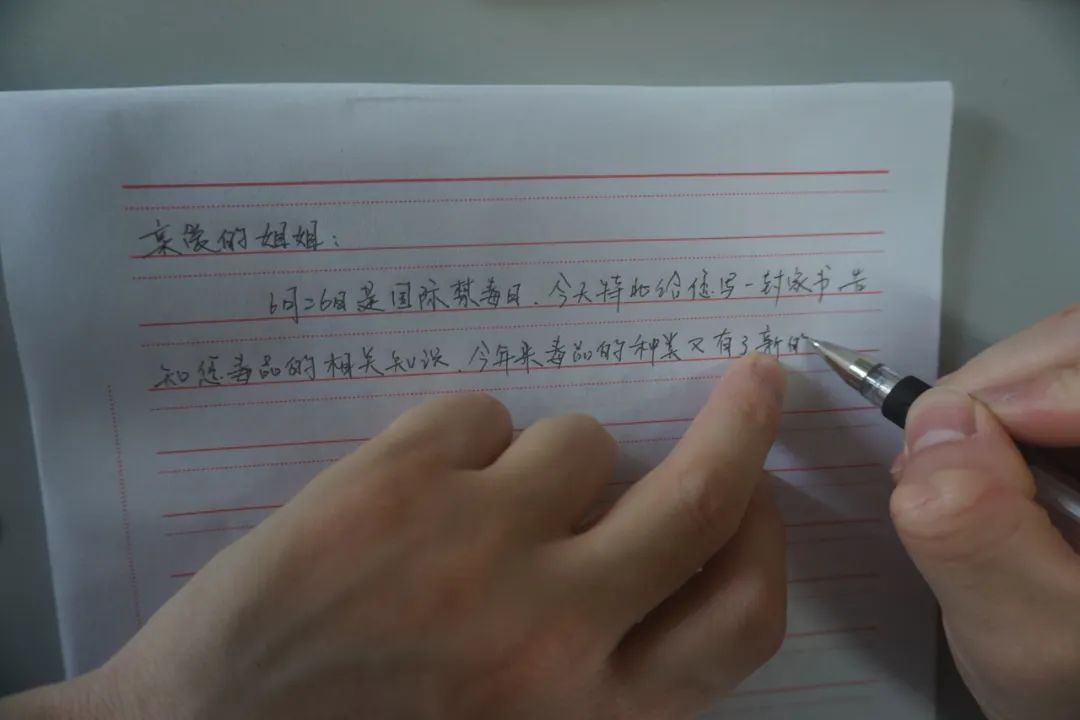 亲爱的姐姐:
6月26日是国际禁毒日,今天特此给您写一封家书告
知您毒品的相关知识,今年来毒品的种类又有了新的